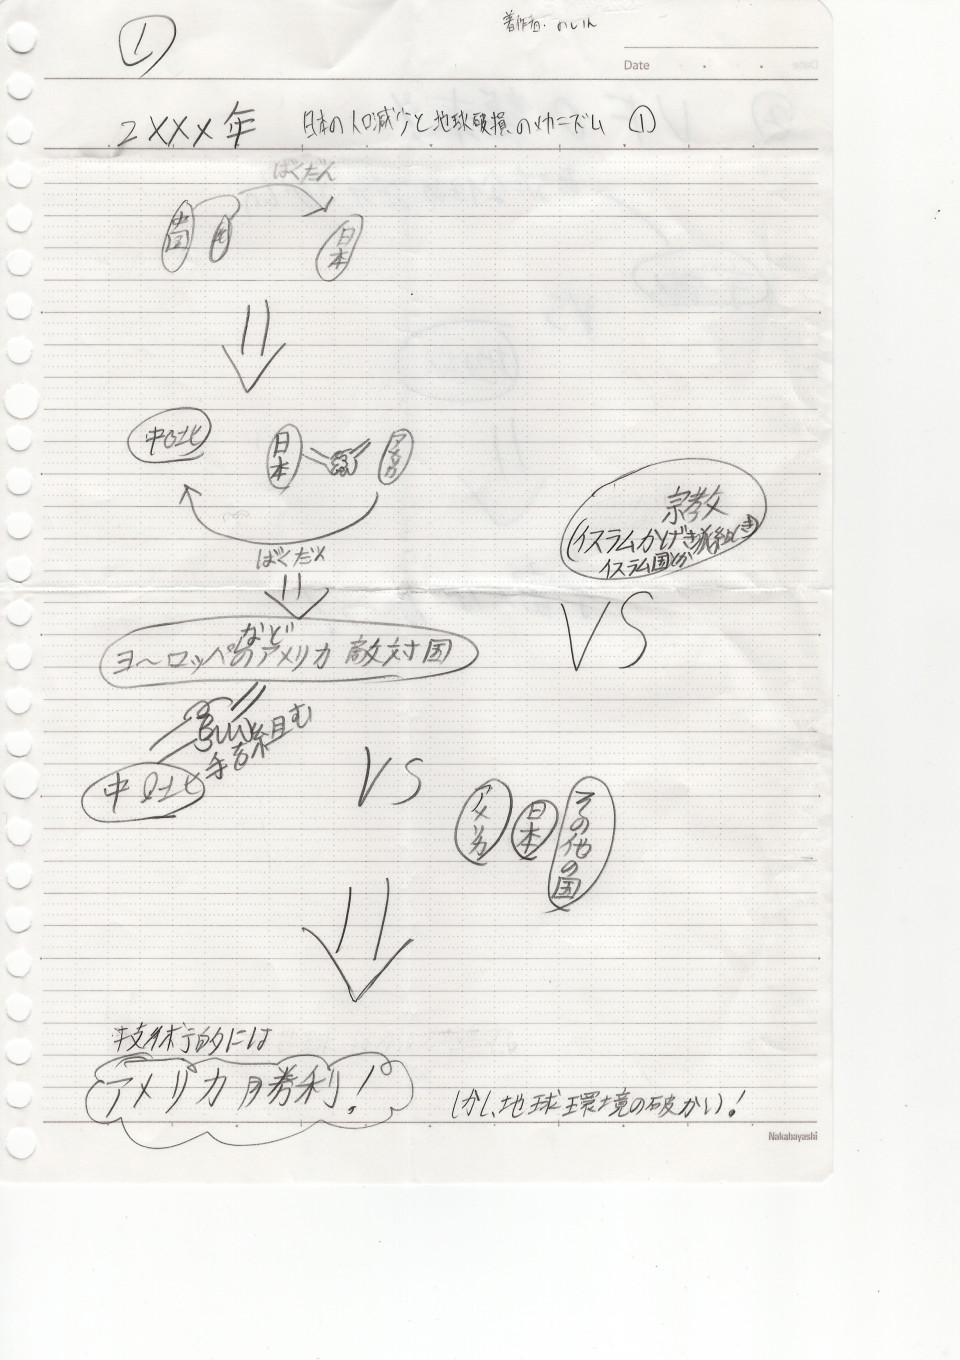 ①
著作者. のしいん
Date
2XXX年 日本の人口減少と地球破損のメカニズム ①
ばくだん
中国
北
日本
中国北
日本
アメリカ
ばくだん
宗教
(イスラムかげき派組しき)
イスラム国とか
VS
など
ヨーロッパのアメリカ敵対国
手を組む
中国北
VS
アメリカ
日本
その他の国
技術的には
アメリカ勝利!
しかし、地球環境の破かい!
Nakabayashi